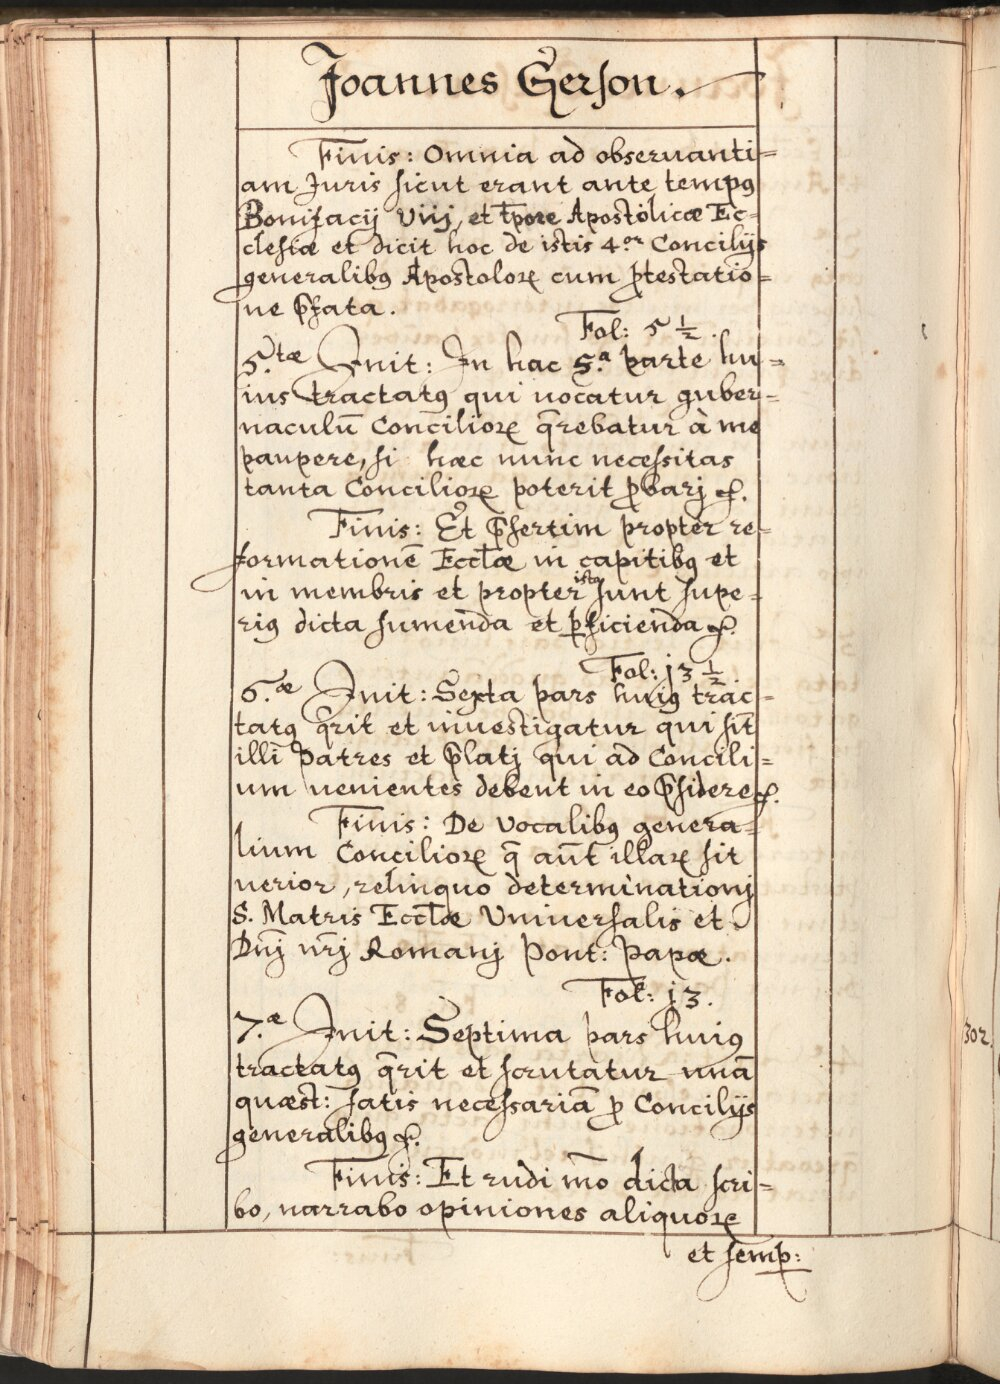 Joannes Gerson.
Finis: Omnia ad obseruanti=
am Juris sicut erant ante tempꝯ
Bonifacij Viij, et tp̄ore Apostolicæ Ec=
clesiæ et dicit hoc de istis 4.or Concilijs
generalibꝯ Apostoloꝝ cum ꝓtestatio=
ne p̄fata.
Fol: 5 ½.
5.tæ Init: In hac 5.a parte hu=
ius tractatꝯ qui uocatur guber=
naculū Concilioꝝ q̄rebatur à me
paupere, si hæc nunc necessitas
tanta Concilioꝝ poterit ꝓbarj &.
Finis: Et p̄sertim propter re=
formationē Eccl̄æ in capitibꝯ et
in membris et propter ista sunt supe=
riꝯ dicta sumenda et ꝑficienda &.
Fol: j3 ½.
6.æ Init: Sexta pars huiꝯ trac=
tatꝯ q̄rit et inuestigatur qui sīt
illi Patres et p̄latj qui ad Concili=
um uenientes debent in eo p̄sidere &.
Finis: De Vocalibꝯ genera=
lium Concilioꝝ q̄ aūt illaꝝ sit
uerior, relinquo determinationj
S. Matris Eccl̄æ Vniuersalis et
Dn̄j nr̄j Romanj Pont: Papæ.
Fol: j3.
7.æ Init: Septima pars huiꝯ
tractatꝯ q̄rit et scrutatur unā
quæst: satis necessariā ꝓ Concilijs
generalibꝯ &.
Finis: Et rudi mō dicta scri=
bo, narrabo opiniones aliquoꝝ
et semꝑ:
302.